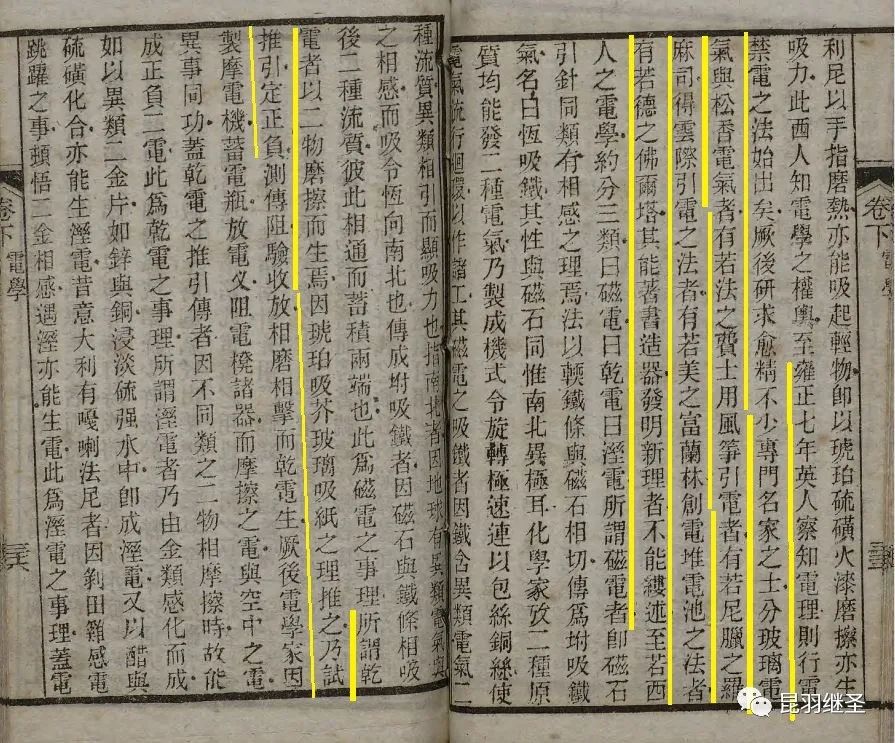 卷下
電學
利尼以手指磨熱亦能吸起輕物卽以琥珀硫磺火漆磨擦亦生
吸力此西人知電學之權輿至雍正七年英人察知電理則行電
禁電之法始出矣厥後研求愈精不少專門名家之士分玻璃電
氣與松香電氣者有若法之費士用風箏引電者有若尼臘之羅
麻司得雲際引電之法者有若美之富蘭林創電堆電池之法者
有若德之佛爾塔其能著書造器發明新理者不能縷述至若西
人之電學約分三類曰磁電曰乾電曰溼電所謂磁電者卽磁石
引針同類有相感之理焉法以輭鐵條與磁石相切傳爲坿吸鐵
氣名曰恆吸鐵其性與磁石同惟南北異極耳化學家攷二種原
質均能發二種電氣乃製成機式令旋轉極速連以包絲銅絲使
電氣流行迴環以作諸工其磁電之吸鐵者因鐵含異類電氣二
種流質異類相引而顯吸力也指南北者因地球有異類電氣與
之相感而吸令恆向南北也傳成坿吸鐵者因磁石與鐵條相吸
後二種流質彼此相通而蓄積兩端也此爲磁電之事理所謂乾
電者以二物磨擦而生焉因琥珀吸芥玻璃吸紙之理推之乃試
推引定正負測傳阻驗收放相磨相擊而乾電生厥後電學家因
製摩電機蓄電瓶放電叉阻電櫈諸器而摩擦之電與空中之電
異事同功蓋乾電之推引傳者因不同類之二物相摩擦時故能
成正負二電此爲乾電之事理所謂溼電者乃由金類感化而成
如以異類二金片如鋅與銅浸淡硫强水中卽成溼電又以醋與
硫磺化合亦能生溼電昔意大利有嘎喇法尼者因剝田雞感電
跳躍之事頓悟二金相感遇溼亦能生電此爲溼電之事理蓋電
卷下
電學
昆羽继圣